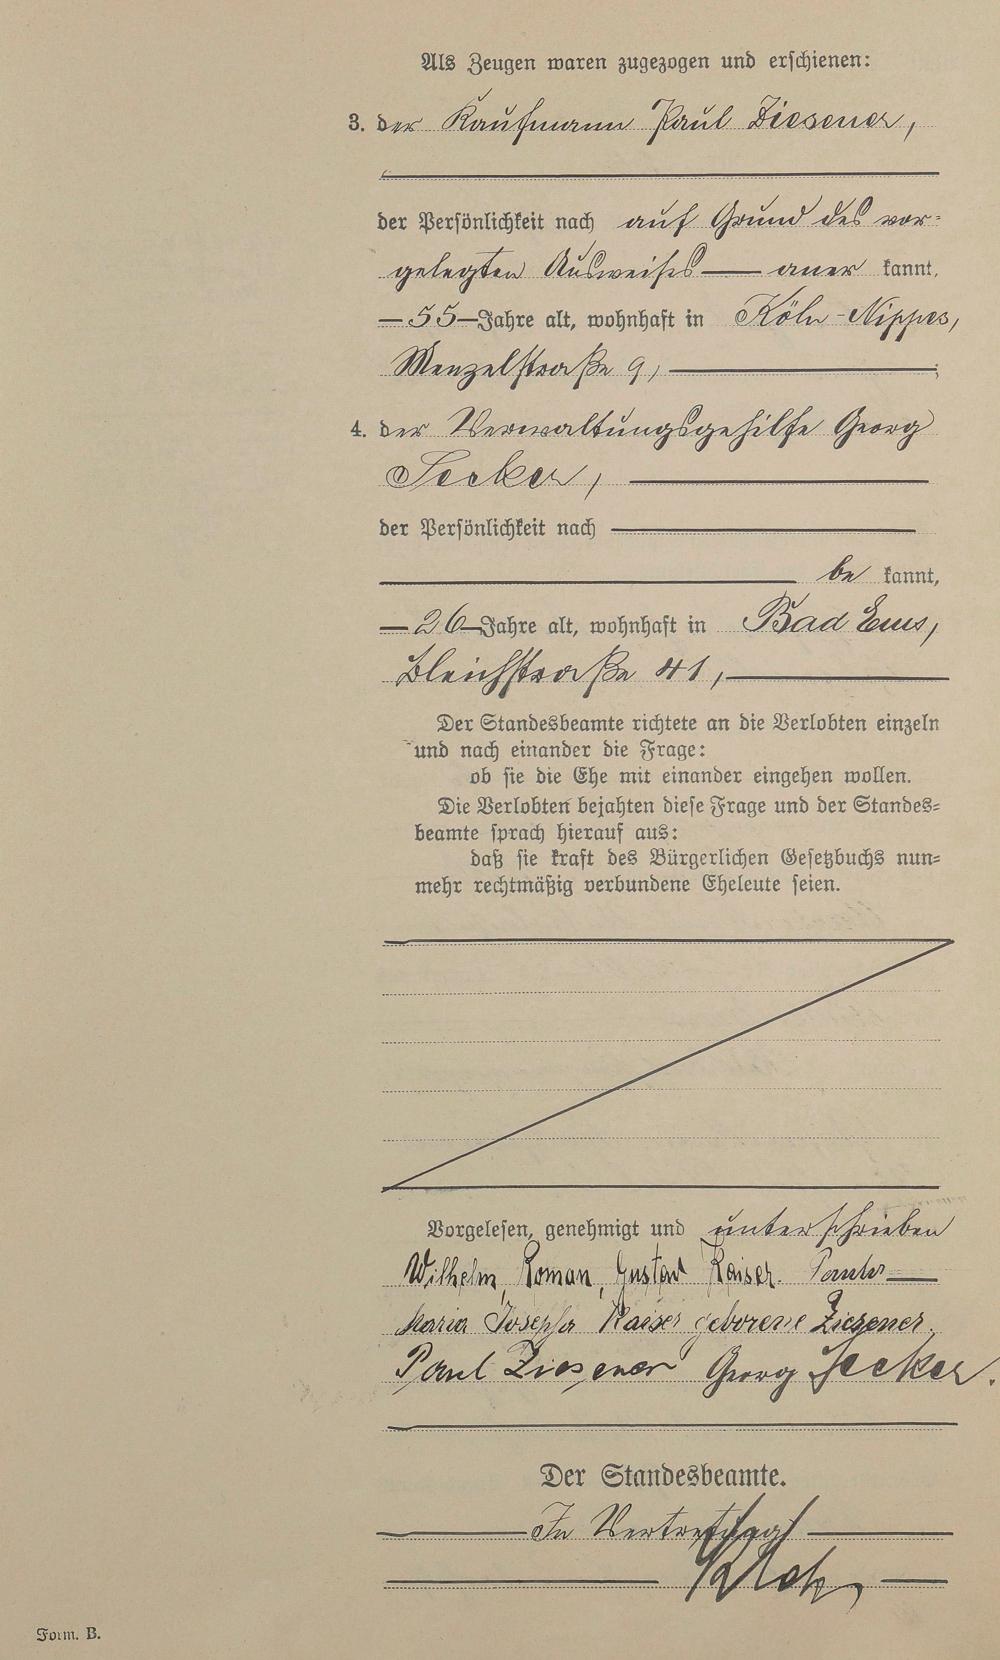 Als Zeugen waren zugezogen und erschienen:
3. der Kaufmann Paul Ziesener,
der Persönlichkeit nach auf Grund des vor-
gelegten Ausweises — aner kannt,
— 55 — Jahre alt, wohnhaft in Köln-Nippes,
Menzelstraße 9,
4. der Verwaltungsgehilfe Georg
Seeker,
der Persönlichkeit nach
be kannt,
— 26 — Jahre alt, wohnhaft in Bad Ems,
Bleichstraße 41,
Der Standesbeamte richtete an die Verlobten einzeln
und nach einander die Frage:
ob sie die Ehe mit einander eingehen wollen.
Die Verlobten bejahten diese Frage und der Standes-
beamte sprach hierauf aus:
daß sie kraft des Bürgerlichen Gesetzbuchs nun-
mehr rechtmäßig verbundene Eheleute seien.
Vorgelesen, genehmigt und unterschrieben
Wilhelm, Roman, Gustav Kaiser.
Maria Josepha Kaiser geborene Ziesener.
Paul Ziesener Georg Seeker.
Der Standesbeamte.
In Vertretung
Form. B.